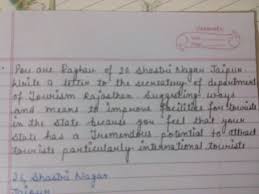 You are Raghav of 26 Shastri Nagar Jaipur
Write a letter to the secretary of department
of Tourism Rajasthan Suggesting ways
and means to improve facilities for tourists
in the state because you feel that your
state has a Tremendous potential to attract
tourists particularly international tourists
26 Shastri Nagar
Jaipur